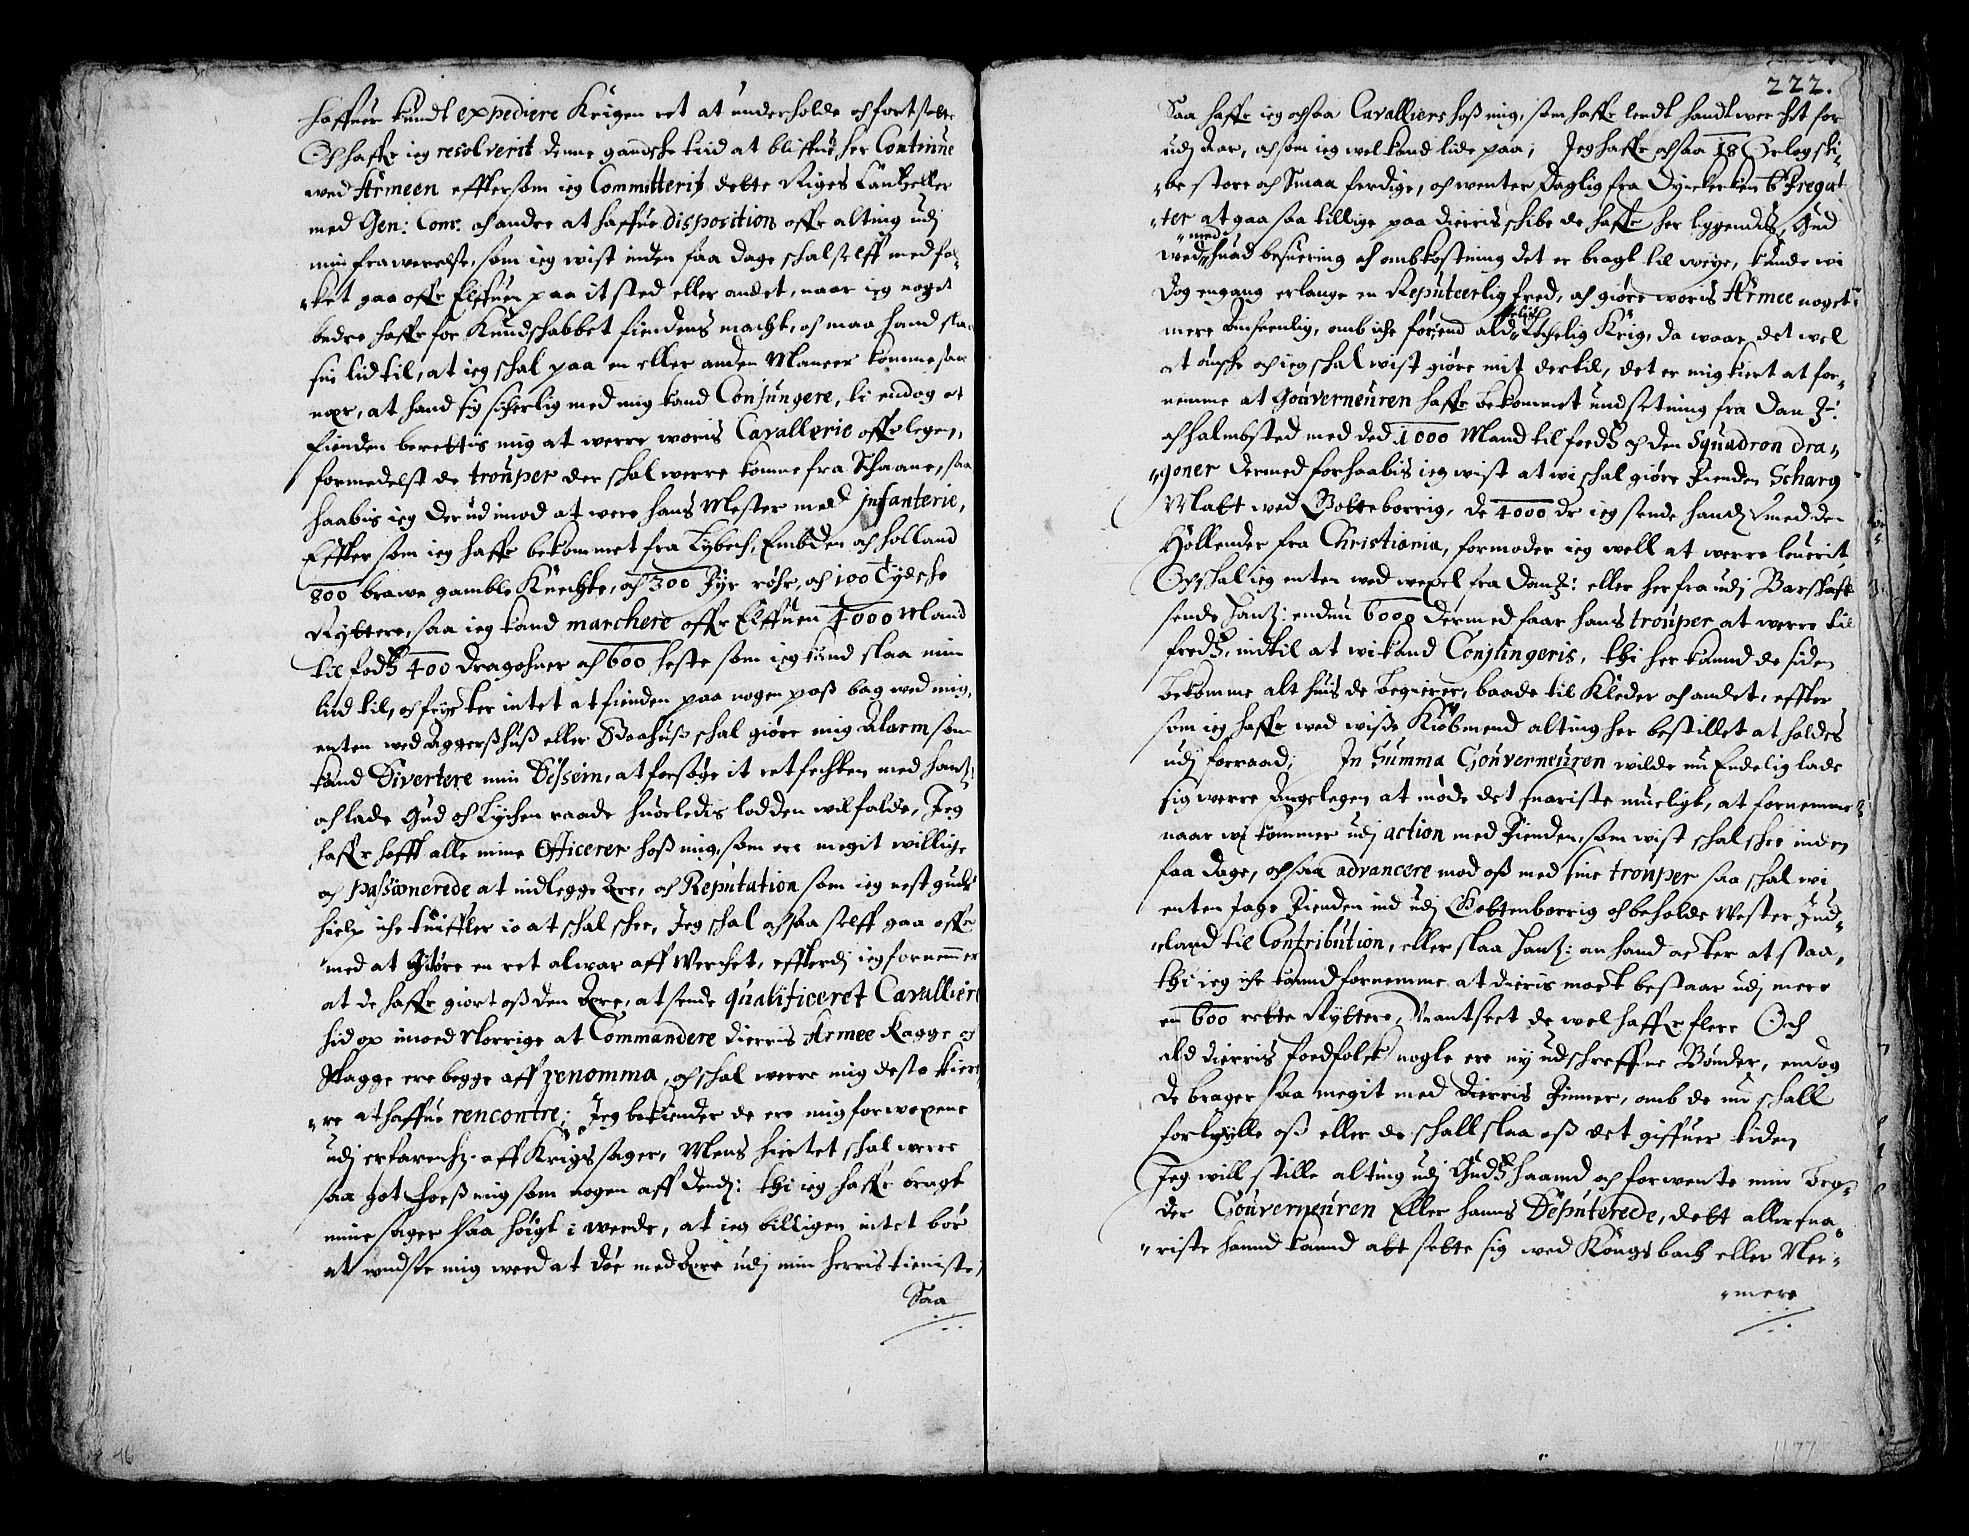 haffuer kundt expediere Krigen ret at underholde och fortsette
Och haffr ieg resolverit denne gandsche tiid at bliffue her Continue
wed Armeen efftersom ieg Committerit dette Riges Cantzeller
med Gen: Com: och andre at haffue disposition offr alting udj
min frawerelse, som ieg wist inden faa dage schal selff med fol-
"ket gaa offr Elffuen paa it sted eller andet, naar ieg noget
bedre haffr for Kundschabbet fiendens macht, och maa hand sla
sin lid til, at ieg schal paa en eller anden Maneer komme saa
nær, at hand sig sicherlig med mig kand Conjungere, ti endog at
fienden berettis mig at werre woris Cavallerie offrlegen,
formedelst de trouper der schal werre komme fra Schaane, saa
haabis ieg der udimod at were hans Mester med jnfanterie,
Effter som ieg haffr bekommet fra Lybech, Embden och Holland
800 brawe gamble Knechte, och 300 Fyr röhr, och 100 Tydsche
Ryttere, saa ieg kand marchere offr Elffuen 4000 Mand
til fodtz 400 dragohner och 600 heste som ieg kand slaa min
liid til, och frycter intet at fienden paa nogen pass bag wed mig,
enten wed Aggersshuss eller Baahuss schal giöre mig Alarm som
kand Divertere min Dessein, at forsöge it ret fechten med hantz:
och lade Gud och Lychen raade huorledis lodden wil falde, Jeg
haffr hafft alle mine Officerer hoss mig, som ere megit willige
och passionerede at indlegge Ære, och Reputation som ieg nest guds
hielp iche tuiffler io at schal schee, Jeg schal ochsaa selff gaa offr
med at Giöre en ret alwar aff Werchet, effterdj ieg fornemmer
at de haffr giort oss den Ære, at sende qualificeret Cavallier
hid op imoed Norrige at Commandere dierris Armee Kagge och
Stagge ere begge aff renomma, och schal werre mig desto kiere
"re at haffue rencontre; Jeg bekiender de ere mig forwoxene
udj erfarenhz: aff Krigssager, Mens hiertet schal werre
saa got hoess mig som nogen aff dend: thi ieg haffr bragt
mine sager saa höigt i werde, at ieg billigen intet bör
at undsee mig weed at döe med Ære udj min herris tieniste,
Saa
222.
Saa haffr ieg ochsaa Cavalliers hoss mig, som haffr lendt handtwerchet for
udj Aar, och som ieg wel kand lide paa; Jeg haffr ochsaa 18 Orlogski-
"be store och Smaa ferdige, och wenter Daglig fra Dynckerken 6 Fregat
"ter at gaa saa tillige paa dierris schibe de haffr her liggendis, Gud
"med
wed huad besuering och ombkostning det er bragt til weye, kunde wi
Dog engang erlange en Reputeerlig fred, och giöre woris Armee noget
mere Anseenlig, omb iche förend ald Uchelig Krig, da waar det wel
at önsche och ieg schal wist giöre mit dertil, det er mig kiert at for-
nemme at Gouverneuren haffr bekommet undsetning fra Danz:
och Halmbsted med ded 1000 Mand til foedtz och den Squadron dra-
"goner dermed forhaabis ieg wist at wi schal giöre Fienden Scharg
Matt wed Gotteborrig, de 4000 dr ieg sende hand med den
Hollender fra Christiania, formoder ieg well at werre leuerit,
Och schal ieg enten wed wexel fra Danz: eller herfra udj Barschaft
sende Hantz: endnu 6000 dermed faar hans trouper at werre til
fredtz, indtil at wi kand Conjungeris, thi her kannd de siden
bekomme alt huis de begierer, baade til Kleder och andet, effter
som ieg haffr wed wisse Kiöbmend alting her bestillet at holdes
udj forraad; In Summa Gouverneuren wilde nu Endelig lade
sig werre Angelegen at möde det snariste mueligt, at fornemme
naar wj kommer udj action med Fienden, som wist schal schee inden
faa dage, och saa advancere mod oss med sine trouper saa schal wi
enten Jage Fienden ind udj Gottenborrig och beholde Wester Jud-
"eland til Contribution, eller slaa Hantz: an hand acter at staa,
thi ieg iche kannd fornemme at dieris mact bestaar udj mere
enn 600 rette Ryttere, Uantseet de wel haffr flere Och
ald dierris foedfolck nogle ere ny udschreffne Bönder, endog
de brager saa megit med dierris Finner, omb de nu schall
forhylle oss eller de schall slaa oss det giffuer tiden
Jeg will stille alting udj Gudtz haannd och forwente min Bro-
der Gouverneuren Eller hanns Deputerede, dett aller sna
"riste hannd kannd att sette sig wed Kongsback eller Ner-
"mere